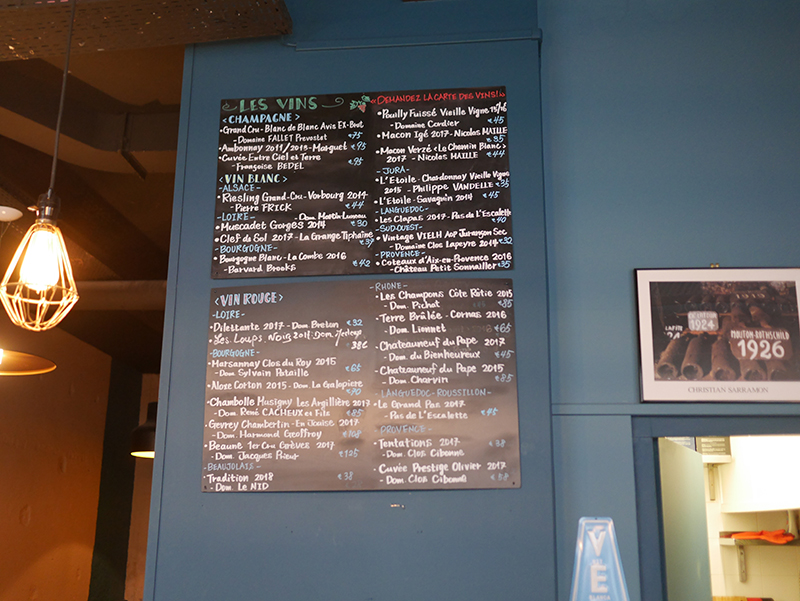 LES VINS
<CHAMPAGNE>
•Grand Cru - Blanc de Blanc Avis EX-Brut
- Domaine FALLET Prevostat €75
•Ambonnay 2011/2013 - Marguet €95
•Cuvée Entre Ciel et Terre
- Françoise BEDEL €95
<VIN BLANC>
-ALSACE-
•Riesling Grand-Cru - Vorbourg 2014
- Pierre FRICK €44
-LOIRE- - Dom. Martin Luneau
•Muscadet Gorges 2014 €30
•Clef de Sol 2017 - La Grange Tiphaine
€39
-BOURGOGNE-
•Bourgogne Blanc - La Combe 2016
- Barvard Brooks €42
«DEMANDEZ LA CARTE DES VINS!»
•Pouilly Fuissé Vieille Vigne 15/16
- Domaine Cordier €45
•Macon Igé 2017 - Nicolas MAILLE
€35
•Macon Verzé <Le Chemin Blanc>
2017 - Nicolas MAILLE €44
-JURA-
•L'Etoile - Chardonnay Vieille Vigne
2015 - Philippe VANDELLE €35
•L'Etoile - Savagnin 2014 €45
-LANGUEDOC-
•Les Clapas 2017 - Pas de L'Escalette
€40
-SUD-OUEST-
•Vintage VIELH Aop Jurançon Sec
- Domaine Clos Lapeyre 2014 €32
-PROVENCE-
•Coteaux d'Aix-en-Provence 2016
- Château Petit Sonnailler €35
<VIN ROUGE>
-LOIRE-
•Dilettante 2017 - Dom. Breton €32
•Les Loups Noir Dom.
38€
-BOURGOGNE-
•Marsannay Clos du Roy 2015
- Dom. Sylvain Pataille €65
•Aloxe Corton 2015 - Dom. La Galopiere
€70
•Chambolle Musigny Les Argillière 2017
- Dom. René CACHEUX et Filz €85
•Gevrey Chambertin - En Jouise 2017
- Dom. Harmand Geoffroy €108
•Beaune 1er Cru Grèves 2017
- Dom. Jacques Prieur €105
-BEAUJOLAIS-
•Tradition 2018 €38
- Dom. Le NID
-RHONE-
•Les Champons Côte Rôtie 2015
- Dom. Pichat €85
•Terre Brûlée - Cornas 2016
- Dom. Lionnet €65
•Chateauneuf du Pape 2017
- Dom. du Bienheureux €45
•Chateauneuf du Pape 2015
- Dom. Charvin €85
-LANGUEDOC-ROUSSILLON-
•Le Grand Pas 2017
- Pas de L'Escalette €45
-PROVENCE-
•Tentations 2017 €38
- Dom. Clos Cibonne
•Cuvée Prestige Olivier 2017
- Dom. Clos Cibonne
1924
MOUTON-ROTHSCHILD
1926
CHRISTIAN SARRAMON
V
E